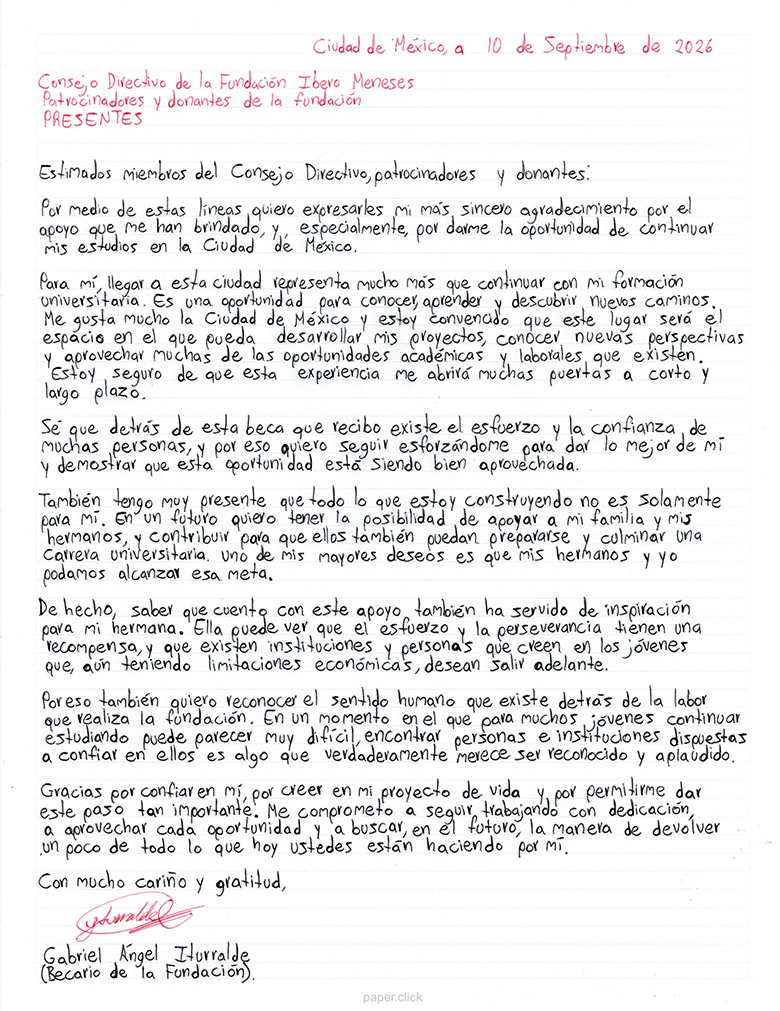 Ciudad de México, a 10 de Septiembre de 2026
Consejo Directivo de la Fundación Ibero Meneses
Patrocinadores y donantes de la fundación
PRESENTES
Estimados miembros del Consejo Directivo, patrocinadores y donantes:
Por medio de estas líneas quiero expresarles mi más sincero agradecimiento por el
apoyo que me han brindado, y, especialmente, por darme la oportunidad de continuar
mis estudios en la Ciudad de México.
Para mí, llegar a esta ciudad representa mucho más que continuar con mi formación
universitaria. Es una oportunidad para conocer, aprender y descubrir nuevos caminos.
Me gusta mucho la Ciudad de México y estoy convencido que este lugar será el
espacio en el que pueda desarrollar mis proyectos, conocer nuevas perspectivas
y aprovechar muchas de las oportunidades académicas y laborales que existen.
Estoy seguro de que esta experiencia me abrirá muchas puertas a corto y
largo plazo.
Sé que detrás de esta beca que recibo existe el esfuerzo y la confianza de
muchas personas, y por eso quiero seguir esforzándome para dar lo mejor de mí
y demostrar que esta oportunidad está siendo bien aprovechada.
También tengo muy presente que todo lo que estoy construyendo no es solamente
para mí. En un futuro quiero tener la posibilidad de apoyar a mi familia y mis
hermanos, y contribuir para que ellos también puedan prepararse y culminar una
carrera universitaria. uno de mis mayores deseos es que mis hermanos y yo
podamos alcanzar esa meta.
De hecho, saber que cuento con este apoyo también ha servido de inspiración
para mi hermana. Ella puede ver que el esfuerzo y la perseverancia tienen una
recompensa, y que existen instituciones y personas que creen en los jóvenes
que, aún teniendo limitaciones económicas, desean salir adelante.
Por eso también quiero reconocer el sentido humano que existe detrás de la labor
que realiza la fundación. En un momento en el que para muchos jóvenes continuar
estudiando puede parecer muy difícil, encontrar personas e instituciones dispuestas
a confiar en ellos es algo que verdaderamente merece ser reconocido y aplaudido.
Gracias por confiar en mí, por creer en mi proyecto de vida y por permitirme dar
este paso tan importante. Me comprometo a seguir trabajando con dedicación,
a aprovechar cada oportunidad y a buscar, en el futuro, la manera de devolver
un poco de todo lo que hoy ustedes están haciendo por mí.
Con mucho cariño y gratitud,
yturralde
Gabriel Ángel Iturralde
(Becario de la Fundación).
paper.click